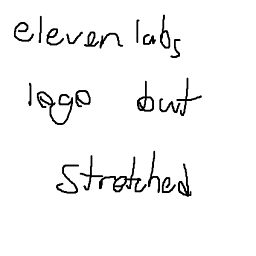 eleven labs
logo but
stretched